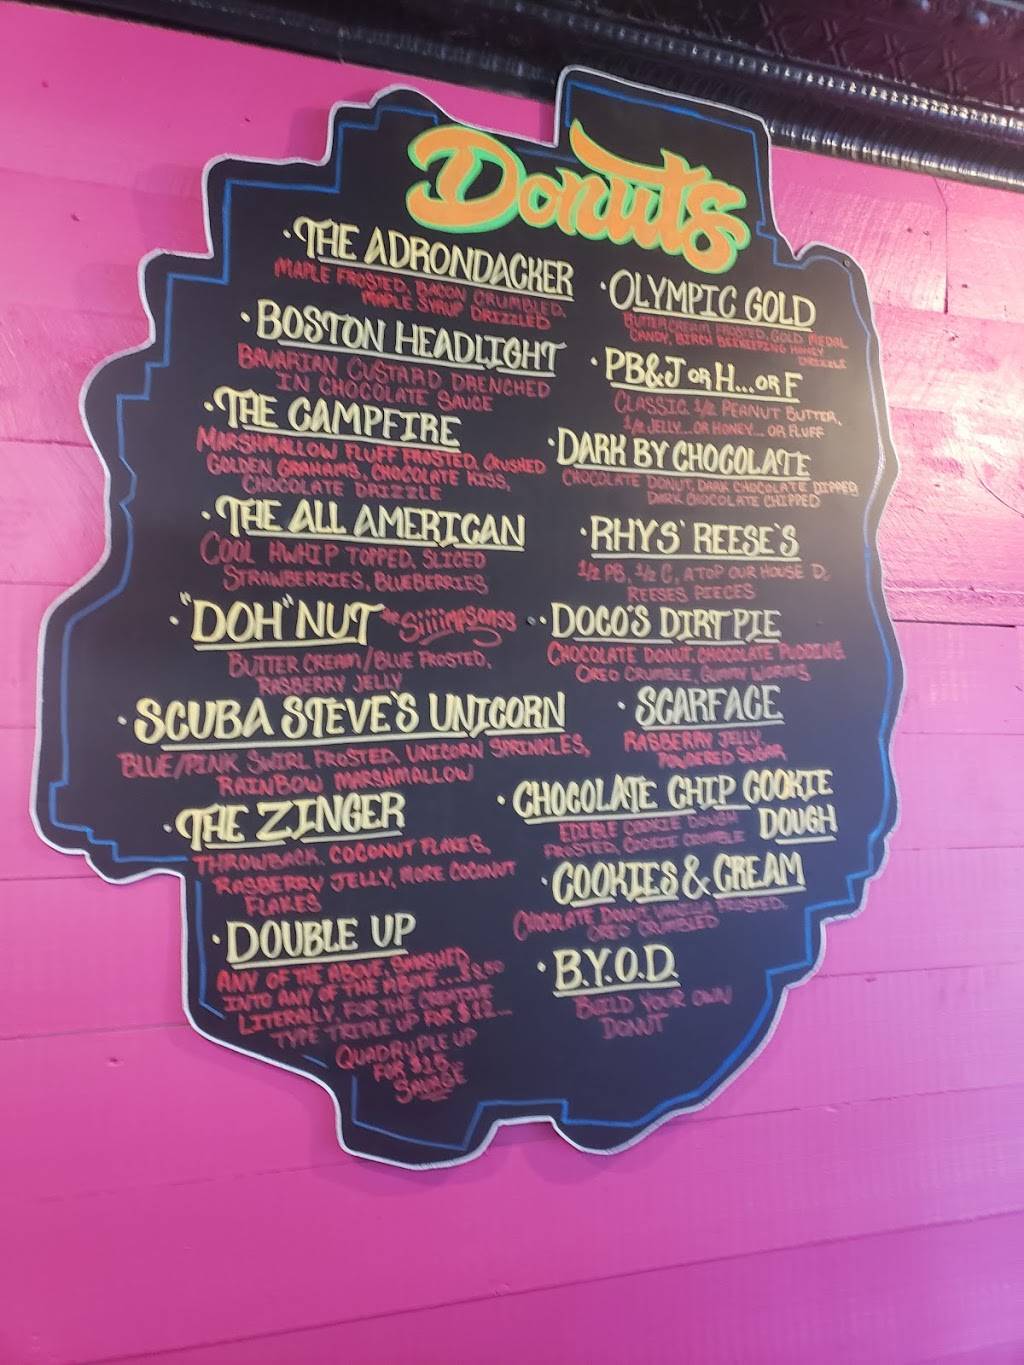 Donuts
·THE ADRONDACKER
MAPLE FROSTED, BACON CRUMBLED,
MAPLE SYRUP DRIZZLED
·BOSTON HEADLIGHT
BAVARIAN CUSTARD DRENCHED
IN CHOCOLATE SAUCE
·THE CAMPFIRE
MARSHMALLOW FLUFF FROSTED, CRUSHED
GOLDEN GRAHAMS, CHOCOLATE KISS,
CHOCOLATE DRIZZLE
·THE ALL AMERICAN
COOL HWHIP TOPPED, SLICED
STRAWBERRIES, BLUEBERRIES
·"DOH"NUT the Siiiimpsonss
BUTTER CREAM/BLUE FROSTED,
RASBERRY JELLY
·SCUBA STEVE'S UNICORN
BLUE/PINK SWIRL FROSTED, UNICORN SPRINKLES,
RAINBOW MARSHMALLOW
·THE ZINGER
THROWBACK, COCONUT FLAKES,
RASBERRY JELLY, MORE COCONUT
FLAKES
·DOUBLE UP
ANY OF THE ABOVE, SMASHED
INTO ANY OF THE ABOVE...$8.50
LITERALLY, FOR THE CREATIVE
TYPE TRIPLE UP FOR $12...
QUADRUPLE UP
FOR $15...
SAVAGE
·OLYMPIC GOLD
BUTTERCREAM FROSTED, GOLD MEDAL
CANDY, BIRCH BEEKEEPING HONEY
DRIZZLE
·PB&J OR H...OR F
CLASSIC 1/2 PEANUT BUTTER,
1/2 JELLY...OR HONEY... OR FLUFF
·DARK BY CHOCOLATE
CHOCOLATE DONUT, DARK CHOCOLATE DIPPED
DARK CHOCOLATE CHIPPED
·RHYS' REESE'S
1/2 PB, 1/2 C, ATOP OUR HOUSE D,
REESES PIECES
·DOCO'S DIRT PIE
CHOCOLATE DONUT, CHOCOLATE PUDDING
OREO CRUMBLE, GUMMY WORMS
·SCARFACE
RASBERRY JELLY
POWDERED SUGAR
·CHOCOLATE CHIP COOKIE
DOUGH
EDIBLE COOKIE DOUGH
FROSTED, COOKIE CRUMBLE
·COOKIES & CREAM
CHOCOLATE DONUT, VANILLA FROSTED,
OREO CRUMBLED
·B.Y.O.D.
BUILD YOUR OWN
DONUT